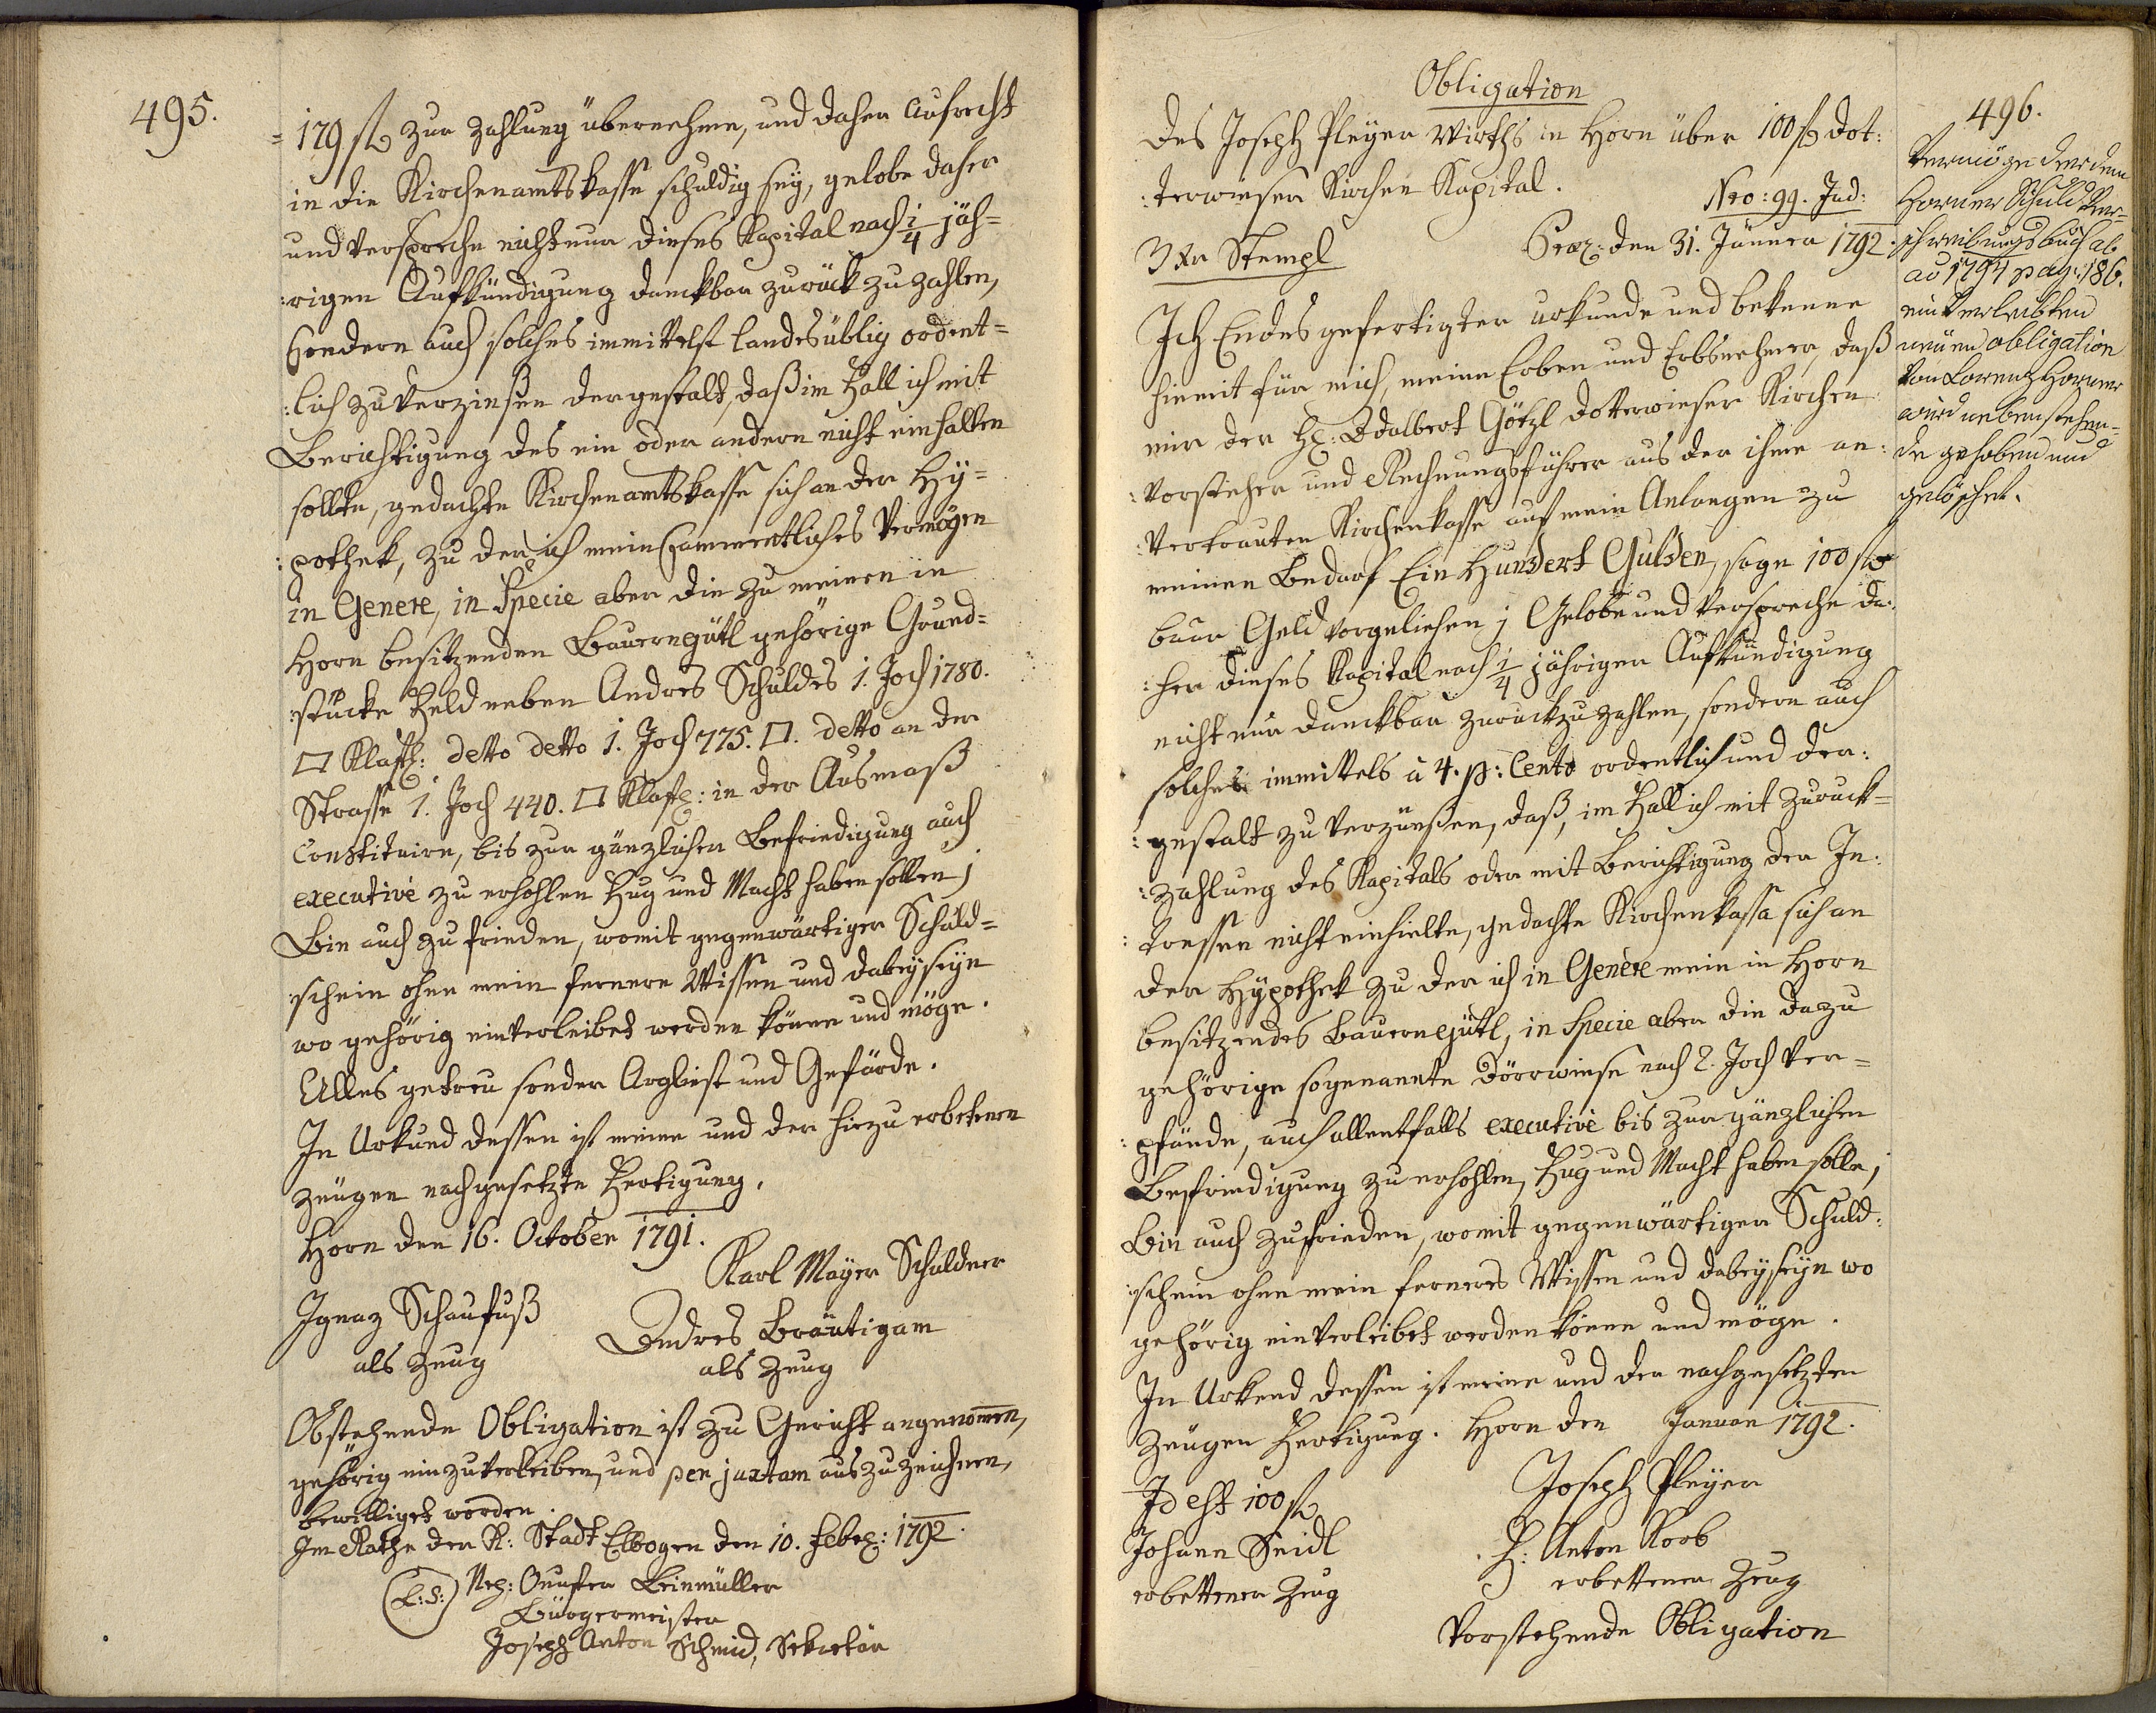 495.
= 179 fl zur Zahlung übernehme, und daher aufrecht
in die Kirchenamtskasse schuldig sey, gelobe daher
und verspreche nicht nur dieses Kapital nach 1/4 jäh=
:rigen Aufkündigung danckbar zurück zu zahlen,
sondern auch solches inmittelst landesüblig ordent=
:lich zu verzinsen dergestalt, daß im Fall ich mit
Berichtigung des ein oder andern nicht einhalten
sollte, gedachte Kirchenamtskasse sich an der Hy=
:pothek, zu der ich mein sammentliches Vermögen
in Genere, in Specie aber die zu meinen in
Horn besitzenden Bauerngütl gehörige Grund=
:stücke Feld neben Andres Schuldes 1. Joch 1780.
□ Klaft: detto detto 1. Joch 775. □. detto an der
Strasse 1. Joch 440. □ Klaft: in der Ausmaß
Constituire, bis zur gänzlichen Befriedigung auch
executivè zu erhohlen Fug und Macht haben sollen;
Bin auch zu frieden, womit gegenwärtiger Schuld=
:schein ohne mein fernere Wissen und dabeyseyn
wo gehörig einverleibet werden könne und möge.
Alles getreu sonder Arglist und Gefärde.
In Urkund dessen ist meine und der hiezu erbetenen
Zeugen nachgesetzte Fertigung.
Horn den 16. October 1791.
Karl Mayer Schuldner
Ignaz Schaufuß
als Zeug
Andres Bräutigam
als Zeug
Obstehende Obligation ist zu Gericht angenommen,
gehörig einzuverleiben, und per juxtam auszuzeichnen,
bewilliget worden.
Im Rathe der K: Stadt Elbogen den 10. Feber: 1792.
(L: S:) Beinmüller
Bürgermeister
Joseph Anton Schmid, Sekretär
Obligation
des Joseph Pleyer Wirths in Horn über 100 fl dot:
:terwieser Kirchen Kapital.
Nro: 99. Jud:
3 Xr Stempl
Præs: den 31. Jänner 1792.
Ich Endesgefertigter urkunde und bekenne
hiemit für mich, meine Erben und Erbsnehmer, daß
mir der H: Adalbert Götzl dotterwieser Kirchen
:vorsteher und Rechnungsführer aus der ihme an:
:vertrauten Kirchenkasse auf mein Anlangen zu
meinen Bedarf Ein Hundert Gulden, sage 100 fl
baar Geld vorgeliehen; Gelobe und verspreche da:
:her dieses Kapital nach 1/4 jähriger Aufkündigung
nicht nur danckbar zurückzuzahlen, sondern auch
solches inmittels à 4. p: Cento ordentlich und der:
:gestalt zu verzünßen, daß, im Fall ich mit Zuruck=
:zahlung des Kapitals oder mit Berichtigung der In:
:tressen nicht einhielte, gedachte Kirchenkassa sich an
der Hÿpothek zu der ich in Genere mein in Horn
besitzendes Bauerngütl, in Specie aber die dazu
gehörige sogenannte Dörrwiese nach 2. Joch ver=
:pfände, auch allentfalls executivè bis zur gänzlichen
Befriedigung zu erhohlen, Fug und Macht haben solle;
Bin auch zufrieden, womit gegenwärtiger Schuld:
:schein ohne mein ferneres Wissen und dabeyseyn wo
gehörig einverleibet werden könne und möge.
In Urkund dessen ist meine und der nachgesetzten
Zeugen Fertigung. Horn den Januar 1792.
Id est 100 fl
Joseph Pleyer
Johann Seidl
erbettener Zeug
H: Anton Korb
erbettener Zeug
Vorstehende Obligation
496.
Vermöge der dem
Horner Schuld Ver=
schreibungsbuch ab
ao 1794 pag: 186.
einverleibten
neuen obligation
von Lorenz Horner
wird nebenstehen=
de gehoben und
gelöschet.